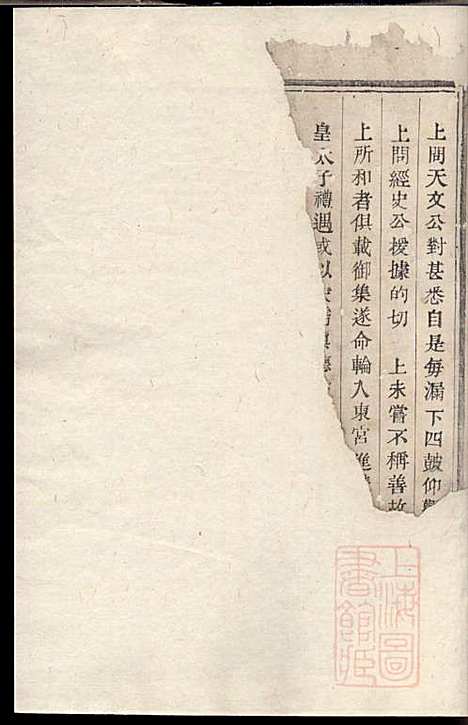 上問天文公對甚悉自是每漏下四鼓仰
上問經史公援據的切　上未嘗不稱善故
上所和者俱載御集遂命輪入東宮進
皇太子禮遇或以
上海圖
書館藏